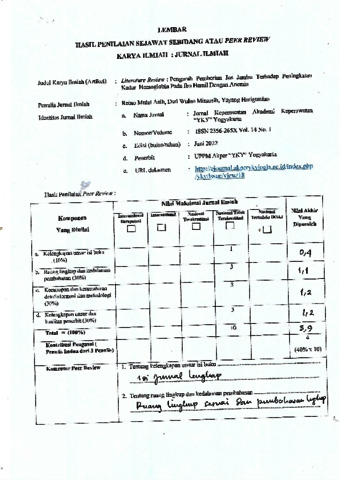 LEMBAR
HASIL PENILAIAN SEJAWAT SEBIDANG ATAU PEER REVIEW
KARYA ILMIAH : JURNAL ILMIAH
Judul Karya Ilmiah (Artikel) : Literature Review : Pengaruh Pemberian Jus Jambu Terhadap Peningkatan
Kadar Hemoglobin Pada Ibu Hamil Dengan Anemia
Penulis Jurnal Ilmiah : Retno Mulat Asih, Dwi Wulan Minarsih, Yayang Harigustian
Identitas Jurnal Ilmiah : a. Nama Jurnal : Jurnal Keperawatan Akademi Keperawatan
"YKY" Yogyakarta
b. Nomor/Volume : ISSN 2356-265X Vol. 14 No. 1
c. Edisi (bulan/tahun) : Juni 2022
d. Penerbit : UPPM Akper "YKY" Yogyakarta
e. URL dokumen :
Hasil Penilaian Peer Review :
Komponen
Yang Dinilai
Nilai Maksimal Jurnal Ilmiah
Internasional
Internasional
Nasional
Terakreditasi
Nasional Tidak
Terakreditasi
Nasional
Terindeks DOAJ
Nilai Akhir
Yang
Diperoleh
a. Kelengkapan unsur isi buku
(10%)
1
0,4
b. Ruang lingkup dan kedalaman
pembahasan (30%)
3
1,1
c. Kecukupan dan kemutakhiran
data/informasi dan metodologi
(30%)
3
1,2
d. Kelengkapan unsur dan
kualitas penerbit (30%)
3
1,2
Total = (100%)
10
3,9
Kontribusi Pengusul
(40% x 10)
Komentar Peer Review
1. Tentang kelengkapan unsur isi buku
Isi jurnal lengkap
2. Tentang ruang lingkup dan kedalaman pembahasan
Ruang lingkup sesuai dan pembahasan lengkap